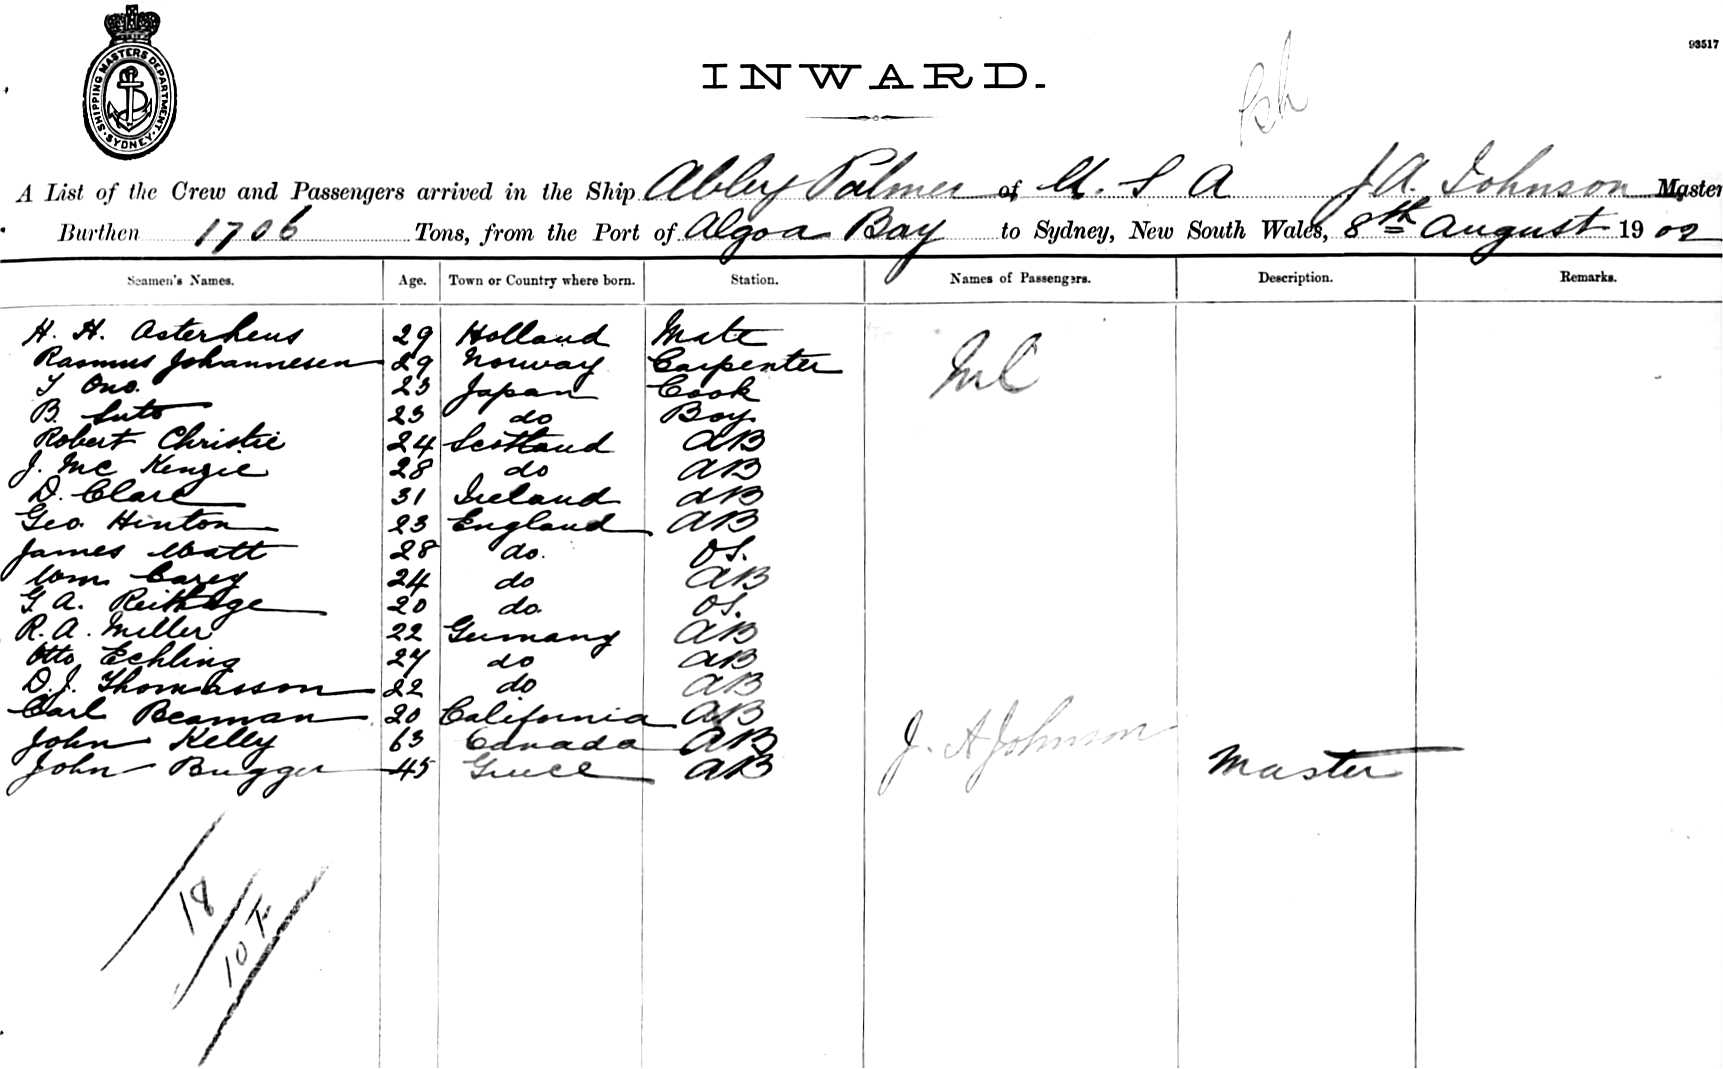 SHIPPING MASTERS DEPARTMENT. SYDNEY
93517
INWARD.
A List of the Crew and Passengers arrived in the Ship Abby Palmer of U. S A J A. Johnson Master
Burthen 1706 Tons, from the Port of Algoa Bay to Sydney, New South Wales, 8th August 1902
Seamen's Names. Age. Town or Country where born. Station. Names of Passengers. Description. Remarks.
H. H. Asterheus 29 Holland Mate
Rasmus Johannesen 29 Norway Carpenter
T Ono. 23 Japan Cook
B. Suto 23 do Boy
Robert Christie 24 Scotland AB
J. Mc Kenzie 28 do AB
D. Clare 31 Ireland AB
Geo. Hinton 23 England AB
James Watt 28 do. OS.
Wm Carey 24 do AB
G. A. Reithage 20 do. OS.
R. A. Miller 22 Germany AB
Otto Echling 27 do AB
D. J. Thomasson 22 do AB
Carl Beaman 20 California AB
John Kelly 63 Canada AB
John Bugger 45 Greece AB
J. A Johnson Master
18
10 F